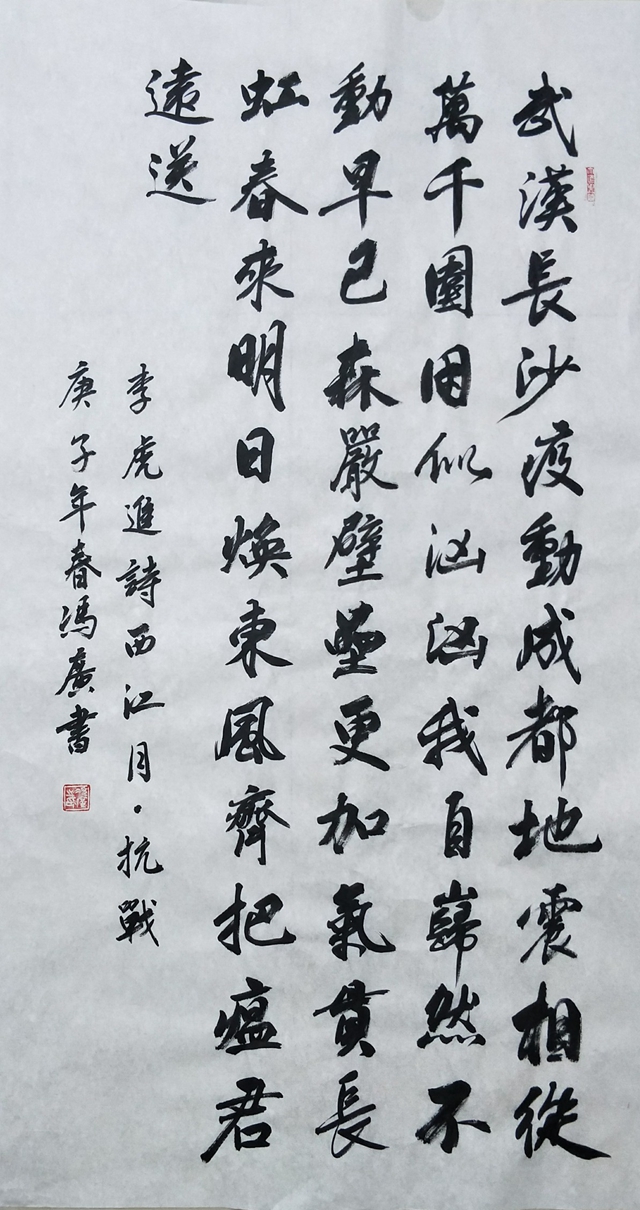 武漢長沙疫動成都地震相從
萬千園困似汹汹我自巋然不
動早已森嚴壁壘更加氣貫長
虹春來明日焕東風齊把瘟君
遠送
李虎進詩西江月·抗戰
庚子年春馮廣書